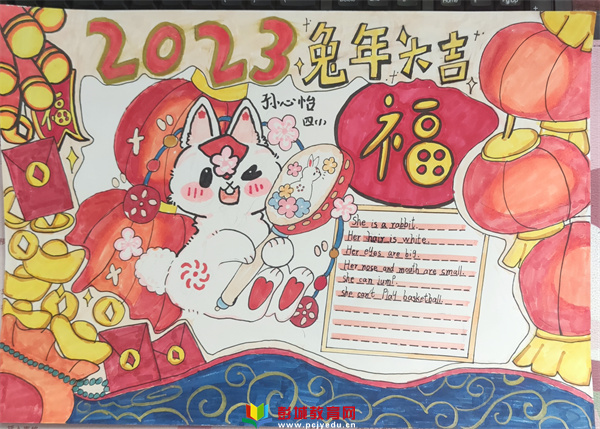 2023 兔年大吉
孙心怡
四(1)
福
福
She is a rabbit.
Her hair is white.
Her eyes are big.
Her nose and mouth are small.
She can Jumf.
She can't Play basketball.
彭城教育网
www.pcjyedu.cn